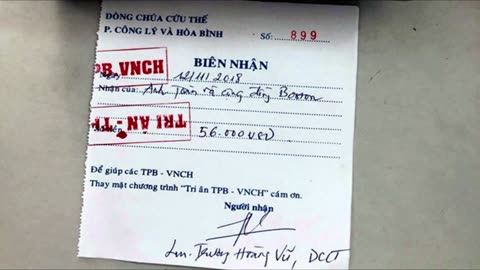 ĐÒNG CHÚA CỨU THẾ
P. CÔNG LÝ VÀ HÒA BÌNH
Số: 899
BIÊN NHẬN
TPB VNCH
Ngày 12/11/2018
Nhận của: Anh Toàn và cộng đồng Boston
TRI ÂN - TP
Số tiền: 56.000 USD
Để giúp các TPB - VNCH
Thay mặt chương trình "Tri ân TPB - VNCH" cám ơn.
Người nhận
Lm. Trương Hoàng Vũ, DCCT